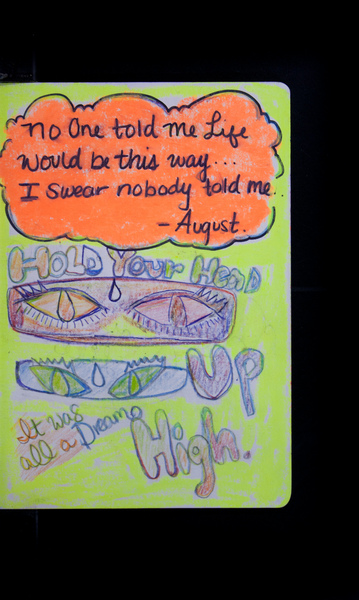 no One told me Life
would be this way...
I swear nobody told me..
- August.
Hold Your Head
Up
It was
all a Dream
High.